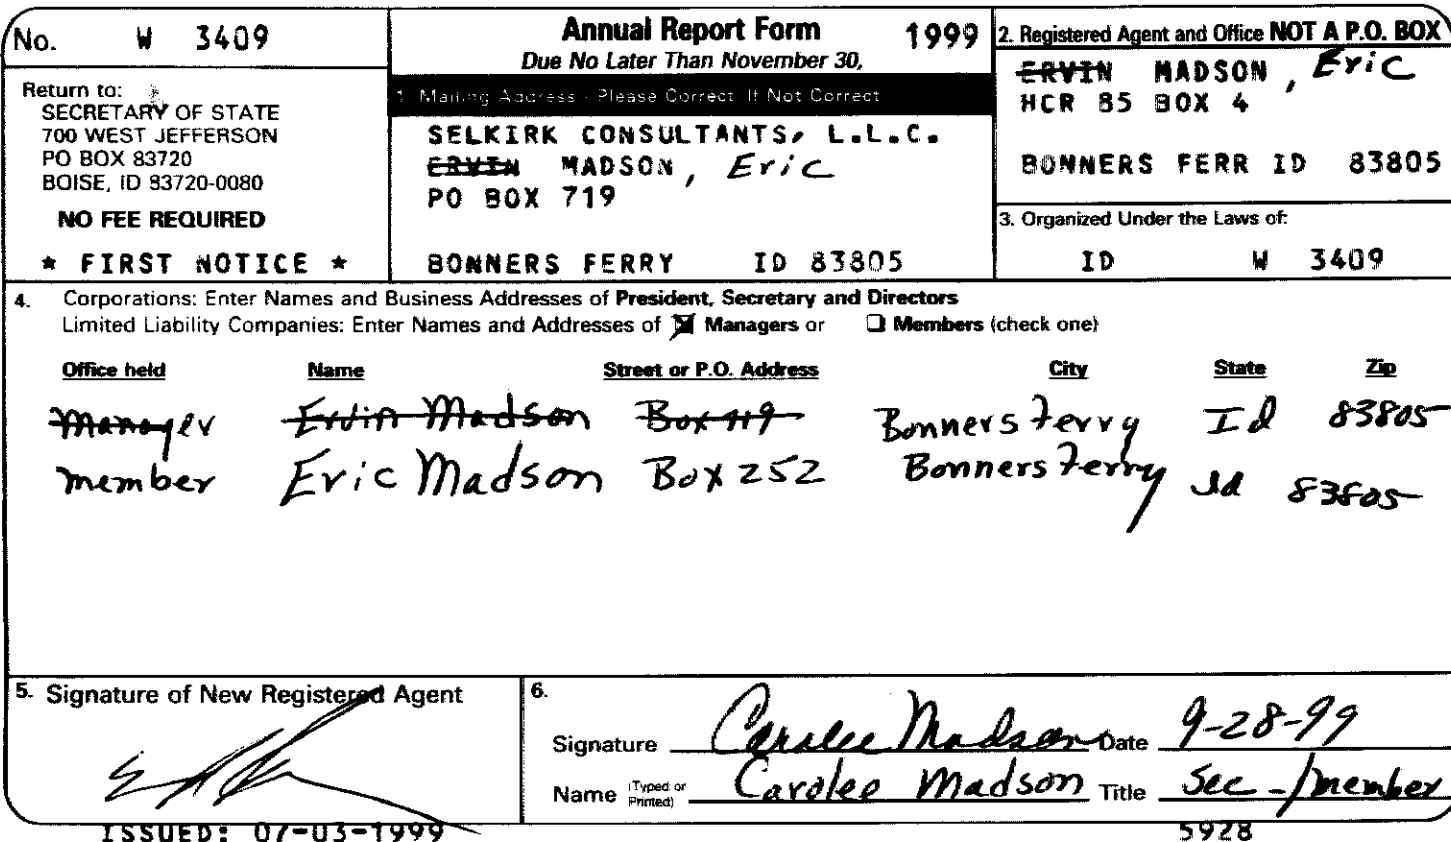 No. W 3409
Annual Report Form 1999
Due No Later Than November 30,
Return to:
SECRETARY OF STATE
700 WEST JEFFERSON
PO BOX 83720
BOISE, ID 83720-0080
NO FEE REQUIRED
* FIRST NOTICE *
1. Mailing Address - Please Correct If Not Correct
SELKIRK CONSULTANTS, L.L.C.
ERVIN MADSON, Eric
PO BOX 719
BONNERS FERRY ID 83805
2. Registered Agent and Office NOT A P.O. BOX
ERVIN MADSON, Eric
HCR 85 BOX 4
BONNERS FERR ID 83805
3. Organized Under the Laws of:
ID W 3409
4. Corporations: Enter Names and Business Addresses of President, Secretary and Directors
Limited Liability Companies: Enter Names and Addresses of Managers or Members (check one)
Office held Name Street or P.O. Address City State Zip
Manager Ervin Madson Box 719 Bonners Ferry Id 83805
member Eric Madson Box 252 Bonners Ferry Id 83805
5. Signature of New Registered Agent
6.
Signature Caralee Madson Date 9-28-99
Name (Typed or Printed) Carolee Madson Title Sec-/member
ISSUED: 07-03-1999
5928